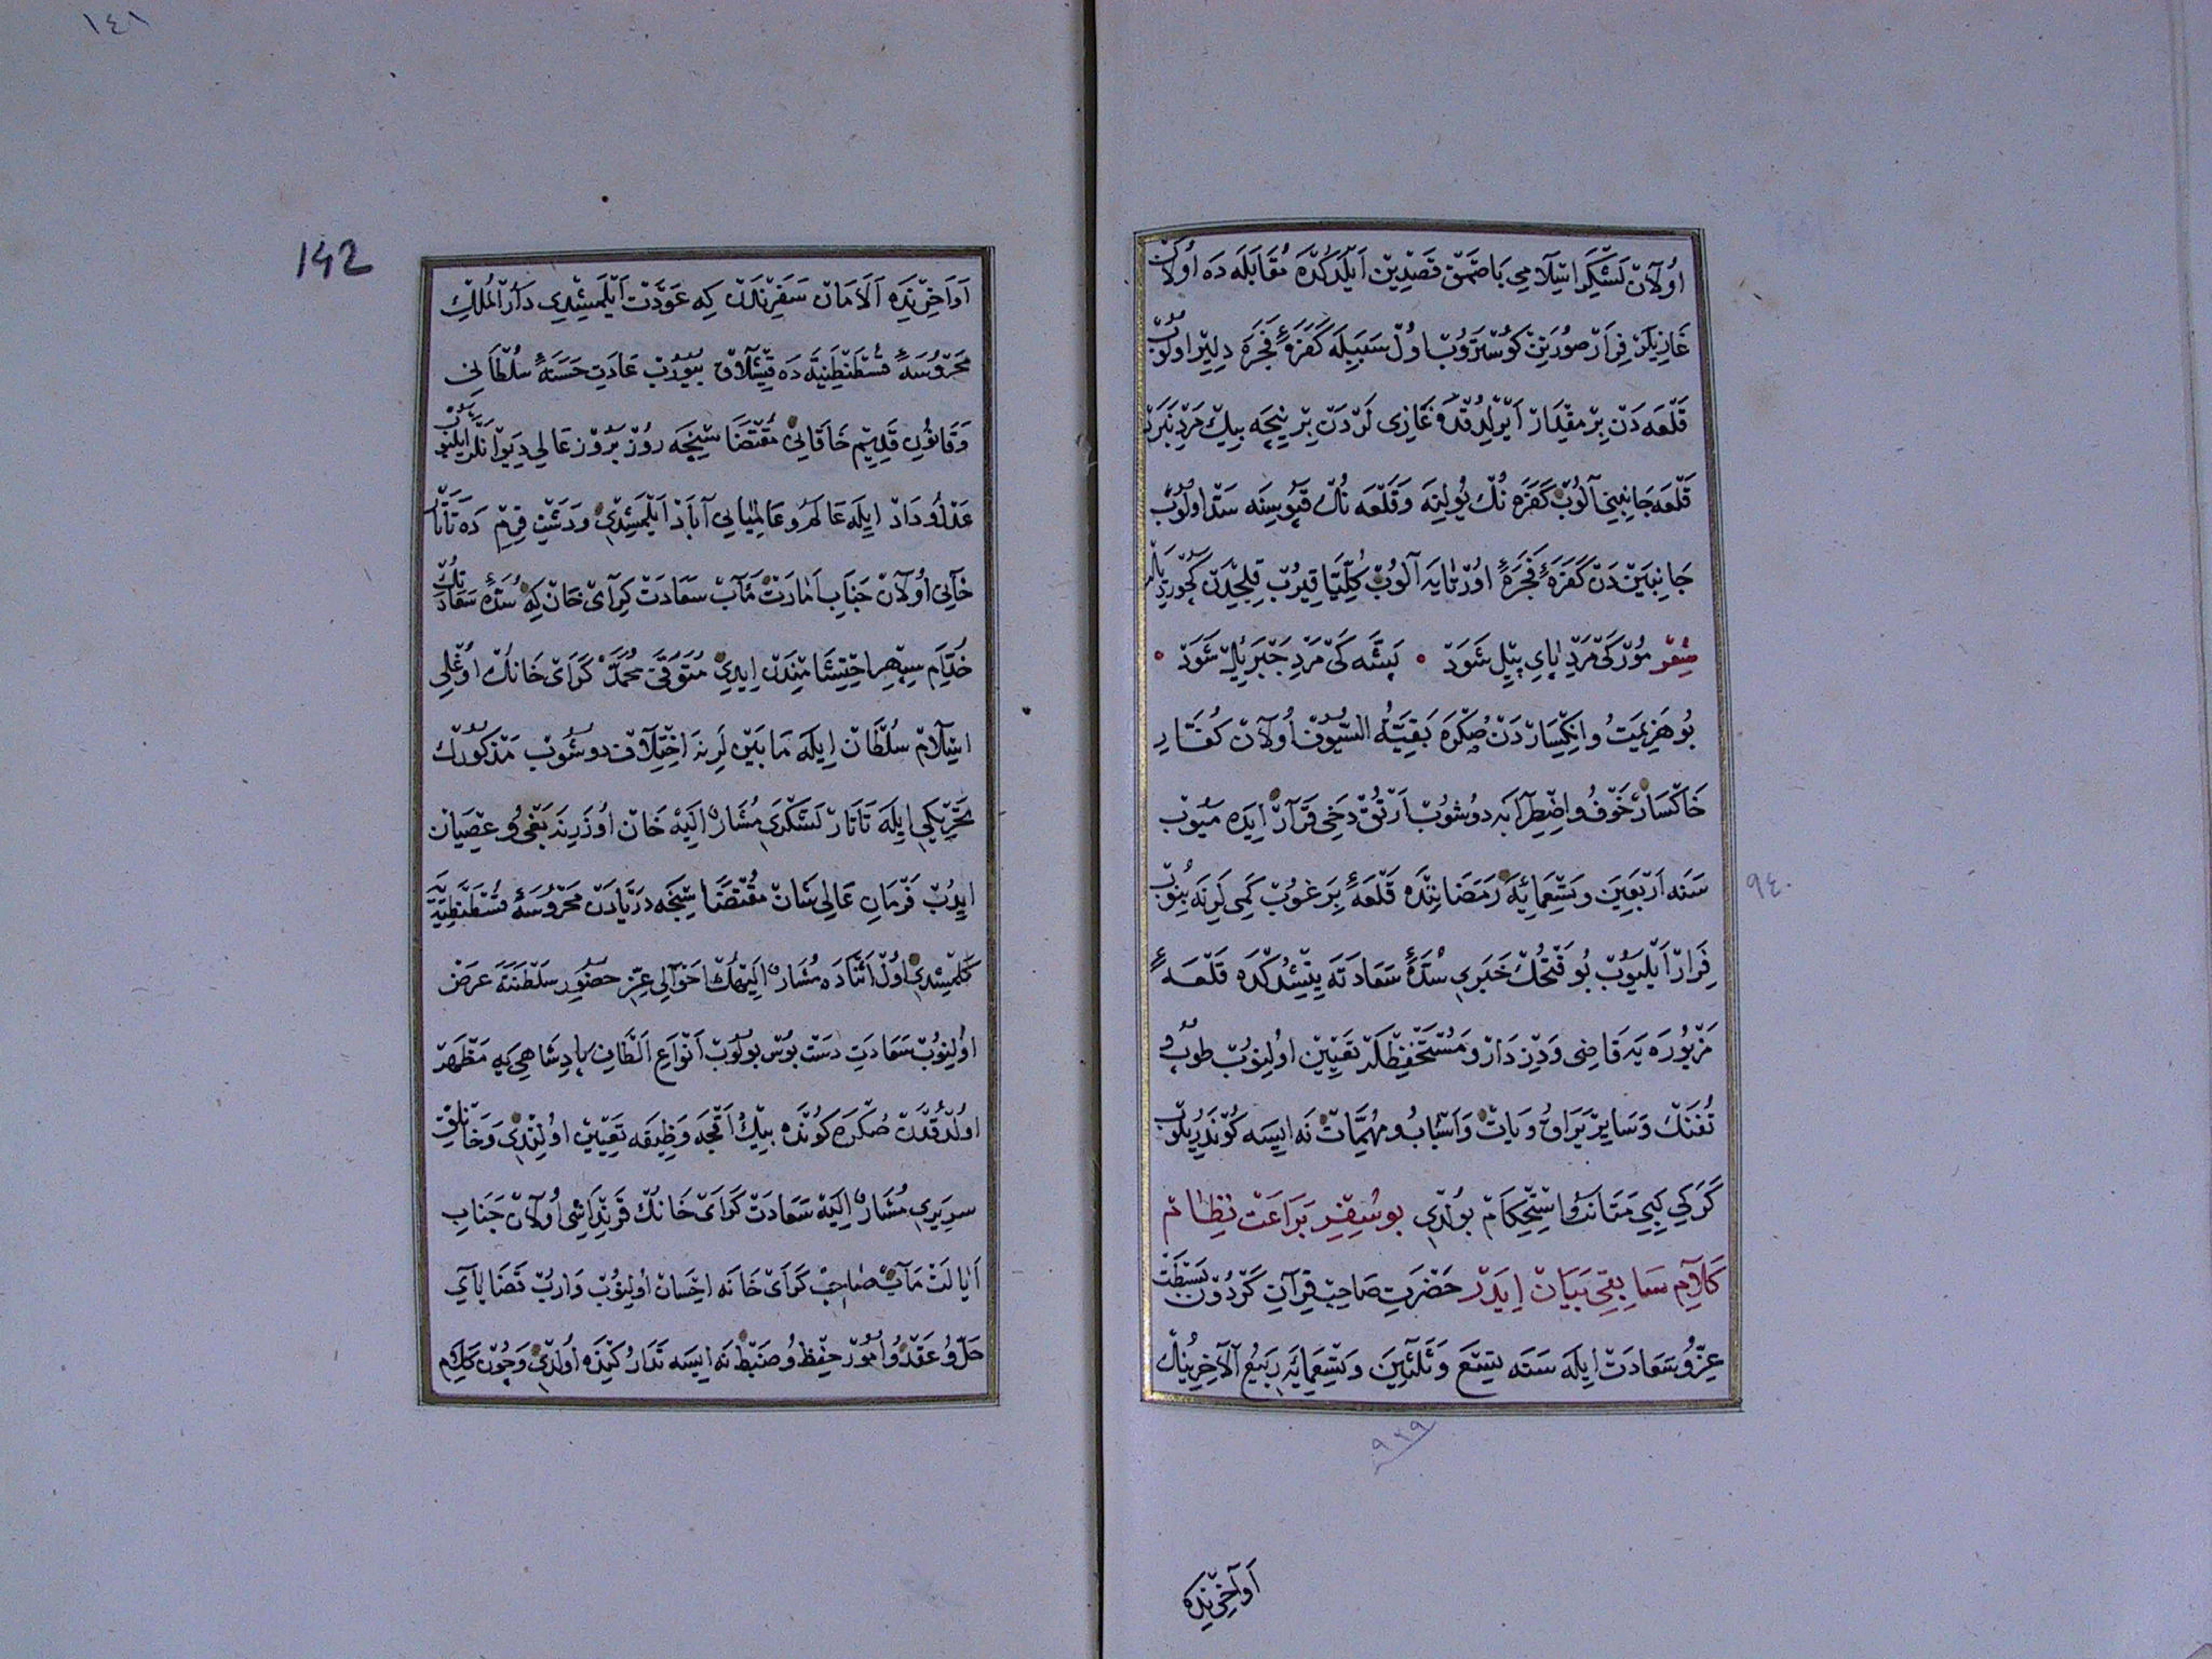 اولان لشكر اسلامی باصمق قصدین ایلدكده مقابله ده اولان
غازیلر فرار صورتین كوستروب اول سببیله كفرۀ فجره دلیر اولوب
قلعه دن بر مقدار ایرلدقده غازی لردن بر نیجه بیك مرد نبرد
قلعه جانبینی آلوب كفره نك یولینه و قلعه نك قپوسینه سد اولوب
جانبیندن كفرۀ فجرۀ اورتایه آلوب كلیتا قیروب قلیجدن كچوردیلر
شعر مور كی مرد پای پیل شود ه پشه كی مرد جبریل شود ه
بو هزیمت و انكساردن صكره بقیة السیوف اولان كفار
خاكسار خوف و اضطرابه دوشوب ارتق دخی قرار ایده میوب
سنه اربعین و تسعمایه رمضاننده قلعۀ برغوب كمی لرنه بنوب
٩٤٠
فرار ایلیوب بو فتحك خبری سدۀ سعادته یتیشدكده قلعۀ
مزبوره یه قاضی و دزدار و مستحفظلر تعیین اولینوب طوب و
تفنك و سایر یراق و یات و اسباب و مهمات نه ایسه كوندریلوب
كركی كبی متانت و استحكام بولدی بو سفر براعت نظام
كلام سابقی بیان ایدر حضرت صاحب قران كردون بسطت
عز و سعادت ایله سنه تسع و ثلثین و تسعمایه ربیع الآخرینك
٩٣٩
اواخرینده
١٤١
142
اواخرینده الامان سفرندن كه عودت ایلمیشدی دار الملك
محروسۀ قسطنطنیه ده قیشلاق بیوروب عادت حسنۀ سلطانی
و قانون قدیم خاقانی مقتضا سینجه روز بروز عالی دیوانلر ایلیوب
عدل و داد ایله عالم و عالمیانی آباد ایلمیشدی و دشت قرم ده تاتار
خانی اولان جناب امارت مآب سعادت كرای خان كه سدۀ سعادتك
خدام سپهر احتشامندن ایدی متوفی محمد كرای خانك اوغلی
اسلام سلطان ایله مابین لرنه اختلاف دوشوب مذكورك
تحریكی ایله تاتار لشكری مشار الیه خان اوزرینه بغی و عصیان
ایدوب فرمان عالی شان مقتضا سینجه دریادن محروسۀ قسطنطنیه یه
كلمیشدی اول اثناده مشار الیهك احوالی عز حضور سلطنته عرض
اولینوب سعادت دست بوس بولوب انواع الطاف پادشاهی یه مظهر
اولدقدن صكره كونده بیك اقچه وظیفه تعیین اولندی و خانلق
سریری مشار الیه سعادت كرای خانك قرنداشی اولان جناب
ایالت مآب صاحب كرای خانه احسان اولینوب واروب قضایای
حل و عقد و امور حفظ و ضبط نه ایسه تداركینده اولدی و چون كلام